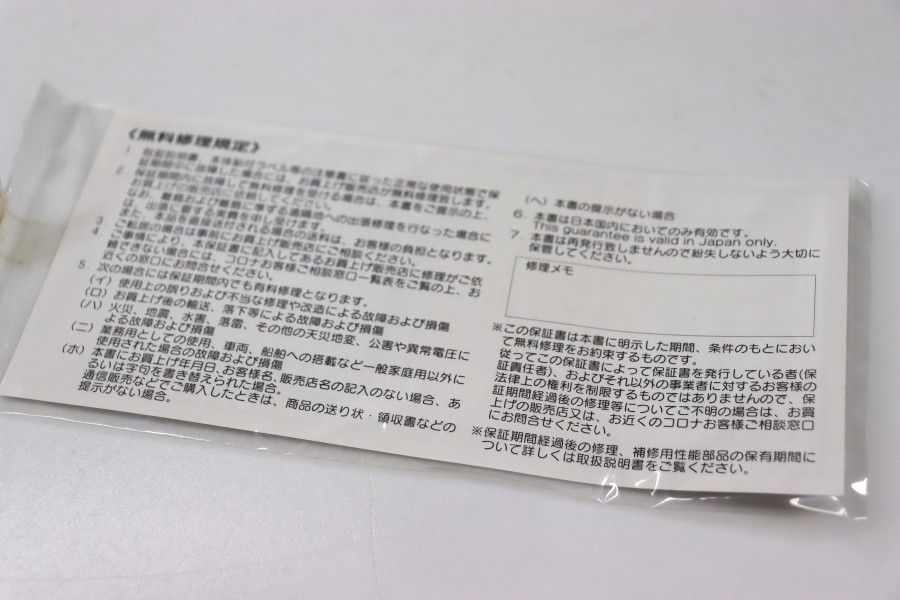 《無料修理規定》
1. 取扱説明書、本体貼付ラベル等の注意書に従った正常な使用状態で保
証期間中に故障した場合には、お買上げ販売店が無料修理致します。
2. 保証期間内に故障して無料修理を受ける場合は、本書をご提示の上、
お買上げの販売店に依頼してください。
なお、離島および離島に準ずる遠隔地への出張修理を行なった場合に
は、出張に要する実費を申し受けます。
また、本品を直接送付される場合の送料は、お客様の負担となります。
3. ご転居の場合は事前にお買上げ販売店にご相談ください。
4. ご事情により、本保証書に記入してあるお買上げ販売店に修理がご依
頼できない場合には、コロナお客様ご相談窓口一覧表をご覧の上、お
近くの窓口にお問合せください。
5. 次の場合には保証期間内でも有料修理となります。
(イ) 使用上の誤りおよび不当な修理や改造による故障および損傷
(ロ) お買上げ後の輸送、落下等による故障および損傷
(ハ) 火災、地震、水害、落雷、その他の天災地変、公害や異常電圧に
よる故障および損傷
(ニ) 業務用としての使用、車両、船舶への搭載など一般家庭用以外に
使用された場合の故障および損傷
(ホ) 本書にお買上げ年月日、お客様名、販売店名の記入のない場合、あ
るいは字句を書き替えられた場合。
通信販売などでご購入したときは、商品の送り状・領収書などの
提示がない場合。
(ヘ) 本書の提示がない場合
6. 本書は日本国内においてのみ有効です。
This guarantee is valid in Japan only.
7. 本書は再発行致しませんので紛失しないよう大切に
保管してください。
修理メモ
※この保証書は本書に明示した期間、条件のもとにおい
て無料修理をお約束するものです。
従ってこの保証書によって保証書を発行している者(保
証責任者)、およびそれ以外の事業者に対するお客様の
法律上の権利を制限するものではありませんので、保
証期間経過後の修理等についてご不明の場合は、お買
上げの販売店又は、お近くのコロナお客様ご相談窓口
にお問合せください。
※保証期間経過後の修理、補修用性能部品の保有期間に
ついて詳しくは取扱説明書をご覧ください。